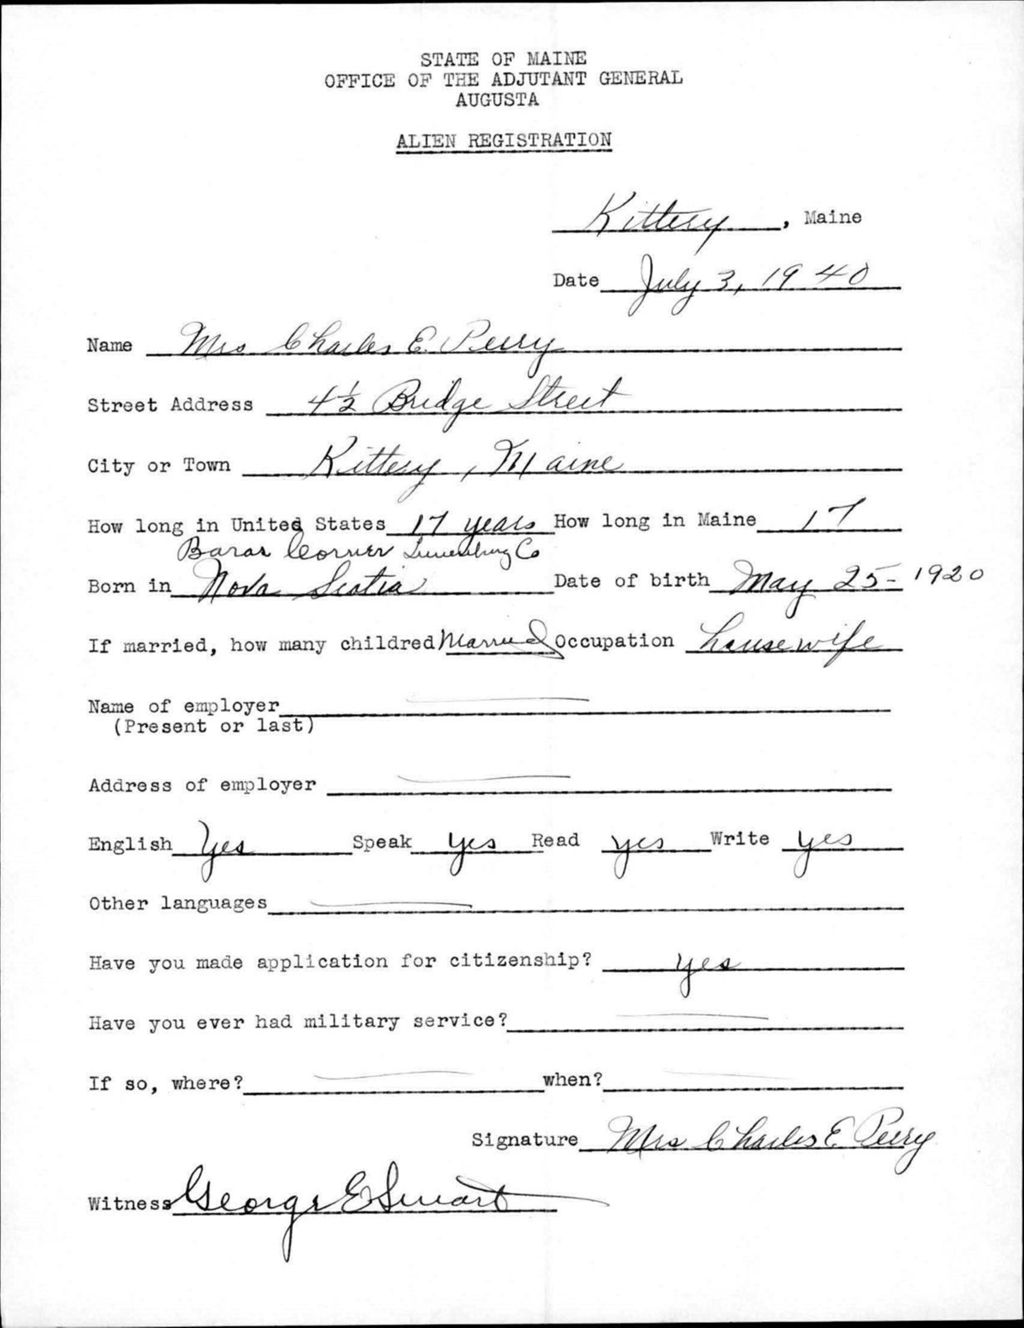 STATE OF MAINE
OFFICE OF THE ADJUTANT GENERAL
AUGUSTA
ALIEN REGISTRATION
Kittery, Maine
Date July 3, 1940
Name Mrs Charles E. Perry
Street Address 4½ Bridge Street
City or Town Kittery, Maine
How long in United States 17 years How long in Maine 17
Baras Corner Lunenburg Co
Born in Nova Scotia Date of birth May 25-1920
If married, how many childred Married Occupation housewife
Name of employer
(Present or last)
Address of employer
English Yes Speak yes Read yes Write yes
Other languages
Have you made application for citizenship? yes
Have you ever had military service?
If so, where? when?
Signature Mrs Charles E. Perry
Witness George E Swart